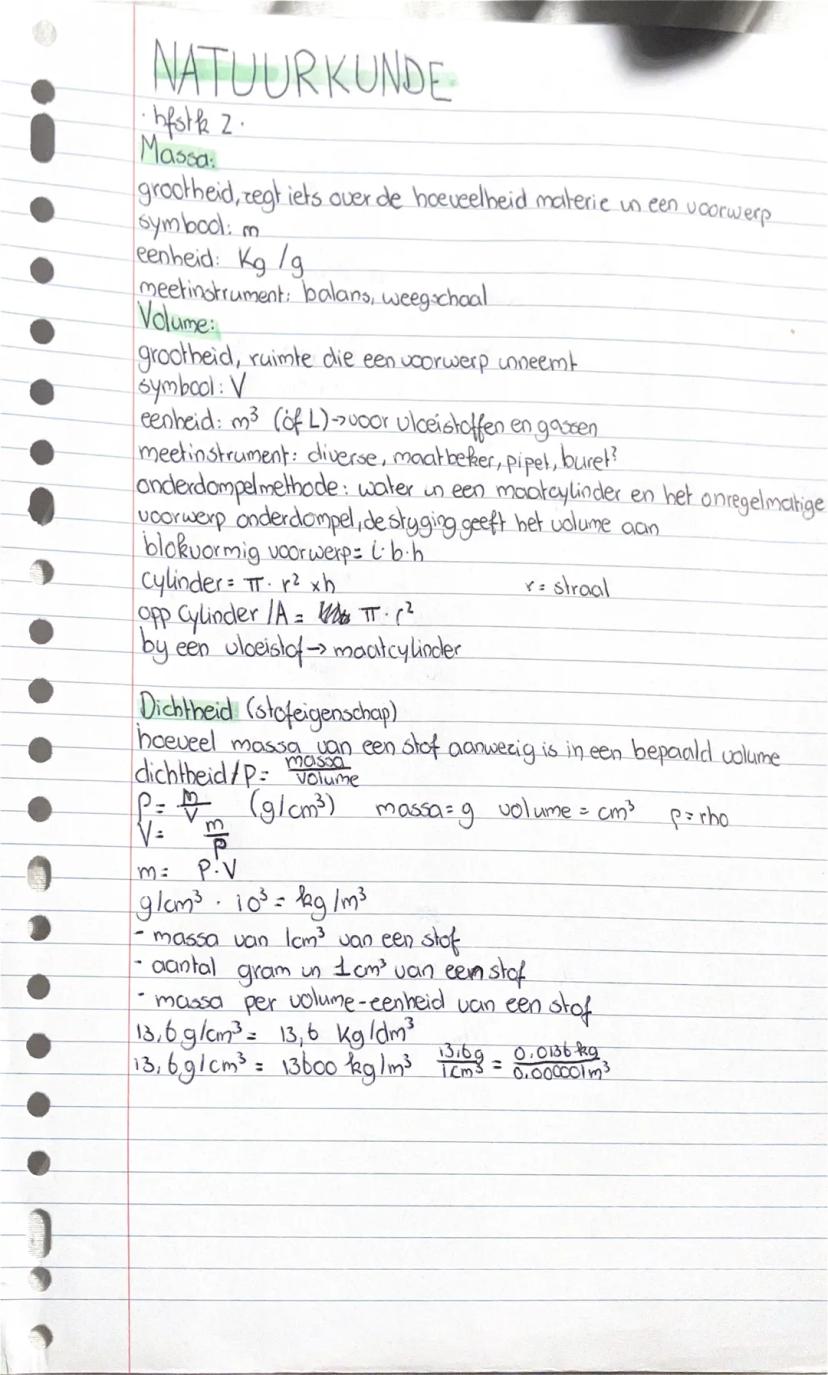 NATUURKUNDE
· hfstk 2 ·
Massa:
grootheid, zegt iets over de hoeveelheid materie in een voorwerp
symbool: m
eenheid: Kg /g
meetinstrument: balans, weegschaal
Volume:
grootheid, ruimte die een voorwerp inneemt
symbool: V
eenheid: m³ (óf L) → voor vloeistoffen en gassen
meetinstrument: diverse, maatbeker, pipet, buret?
onderdompelmethode: water in een maatcylinder en het onregelmatige
voorwerp onderdompel, de styging geeft het volume aan
blokvormig voorwerp = l·b·h
cylinder = π · r² x h r = straal
opp cylinder /A = π · r²
by een vloeistof → maatcylinder
Dichtheid (stofeigenschap)
hoeveel massa van een stof aanwezig is in een bepaald volume
dichtheid/ρ = massa/volume
ρ = m/V (g/cm³) massa = g volume = cm³ ρ = rho
V = m/ρ
m = ρ·V
g/cm³ · 10³ = kg/m³
- massa van 1cm³ van een stof
- aantal gram in 1cm³ van een stof
- massa per volume-eenheid van een stof
13,6 g/cm³ = 13,6 Kg/dm³
13,6 g/cm³ = 13600 kg/m³ 13,6g/1cm³ = 0.0136 kg/0.000001m³